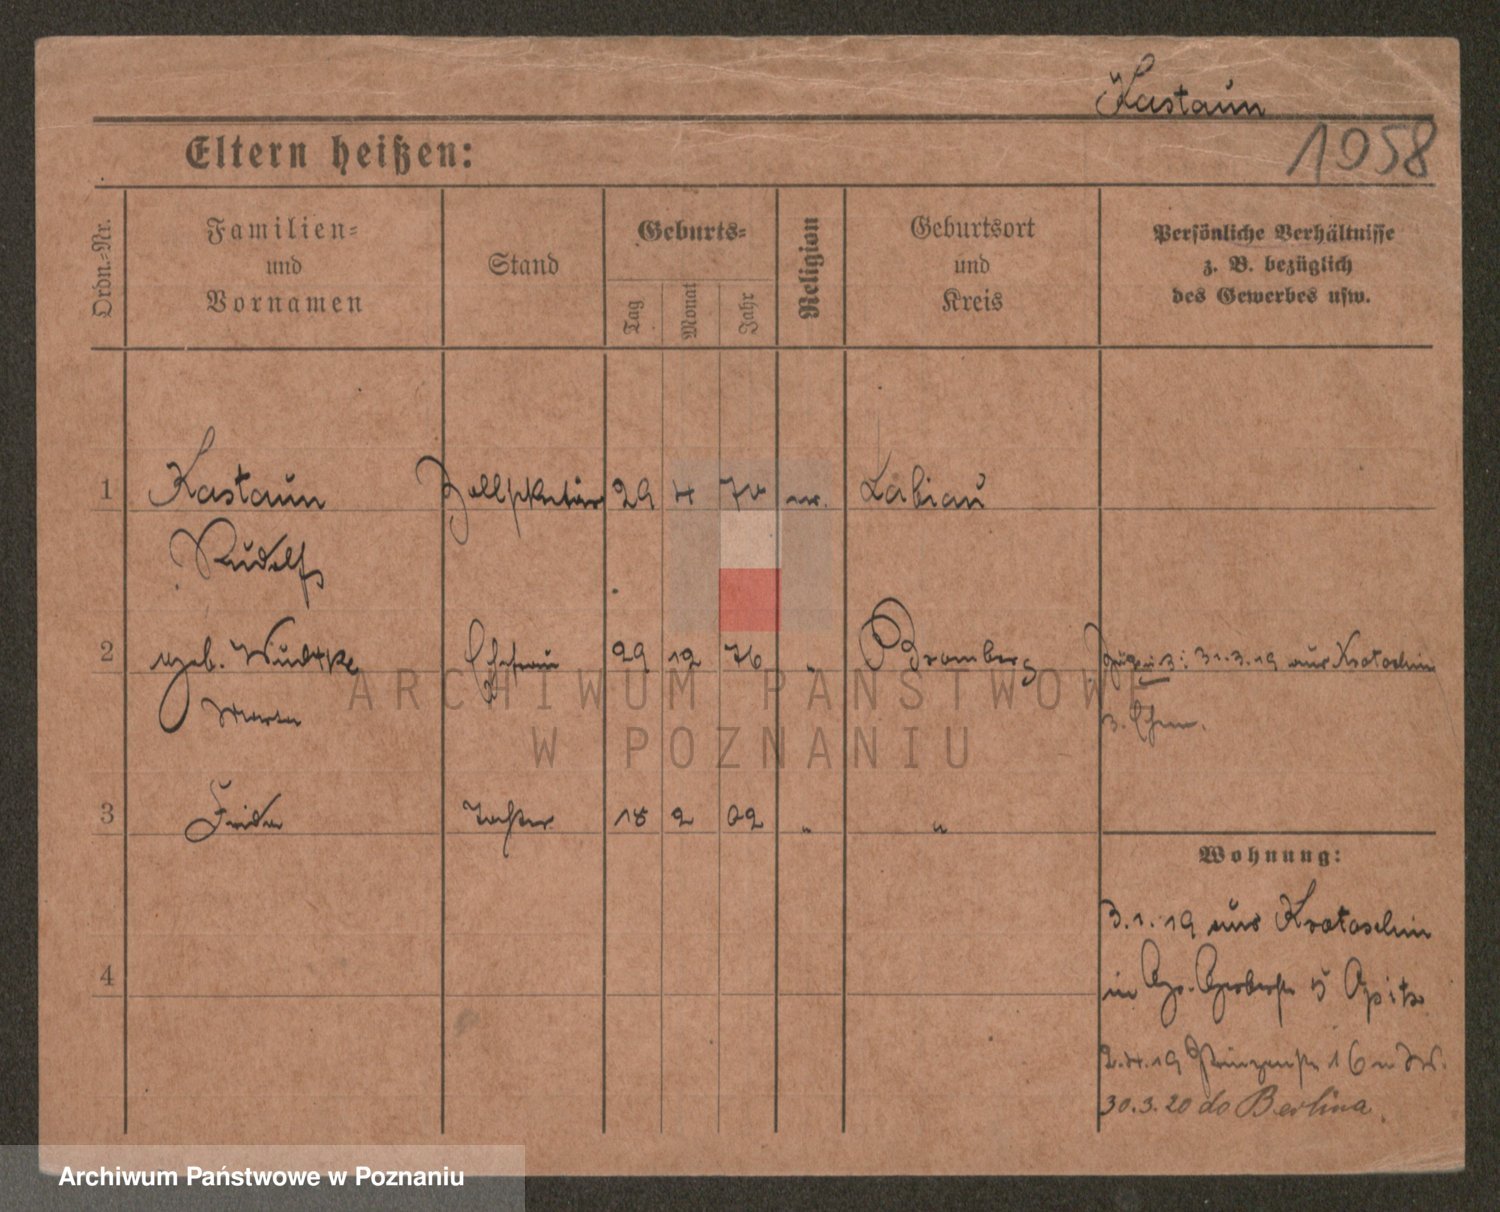 Kastaun
1058
Eltern heißen:
Ordn.-Nr.
Familien-
und
Vornamen
Stand
Geburts-
Tag
Monat
Jahr
Religion
Geburtsort
und
Kreis
Persönliche Verhältnisse
z. B. bezüglich
des Gewerbes usw.
1 Kastaun Zollsekretär 29 4 70 Labiau
Rudolf
2 geb. Wudtke Ehefrau 29 12 76 " Bromberg 31.3.19 aus Krotoschin
3 Frida Tochter 18 2 02 " "
Wohnung:
3.1.19 aus Krotoschin
in Gr. Gerberstr 5
4
2.4.19 Prinzenstr 16
30.3.20 do Berlina
ARCHIWUM PAŃSTWOWE
W POZNANIU
Archiwum Państwowe w Poznaniu